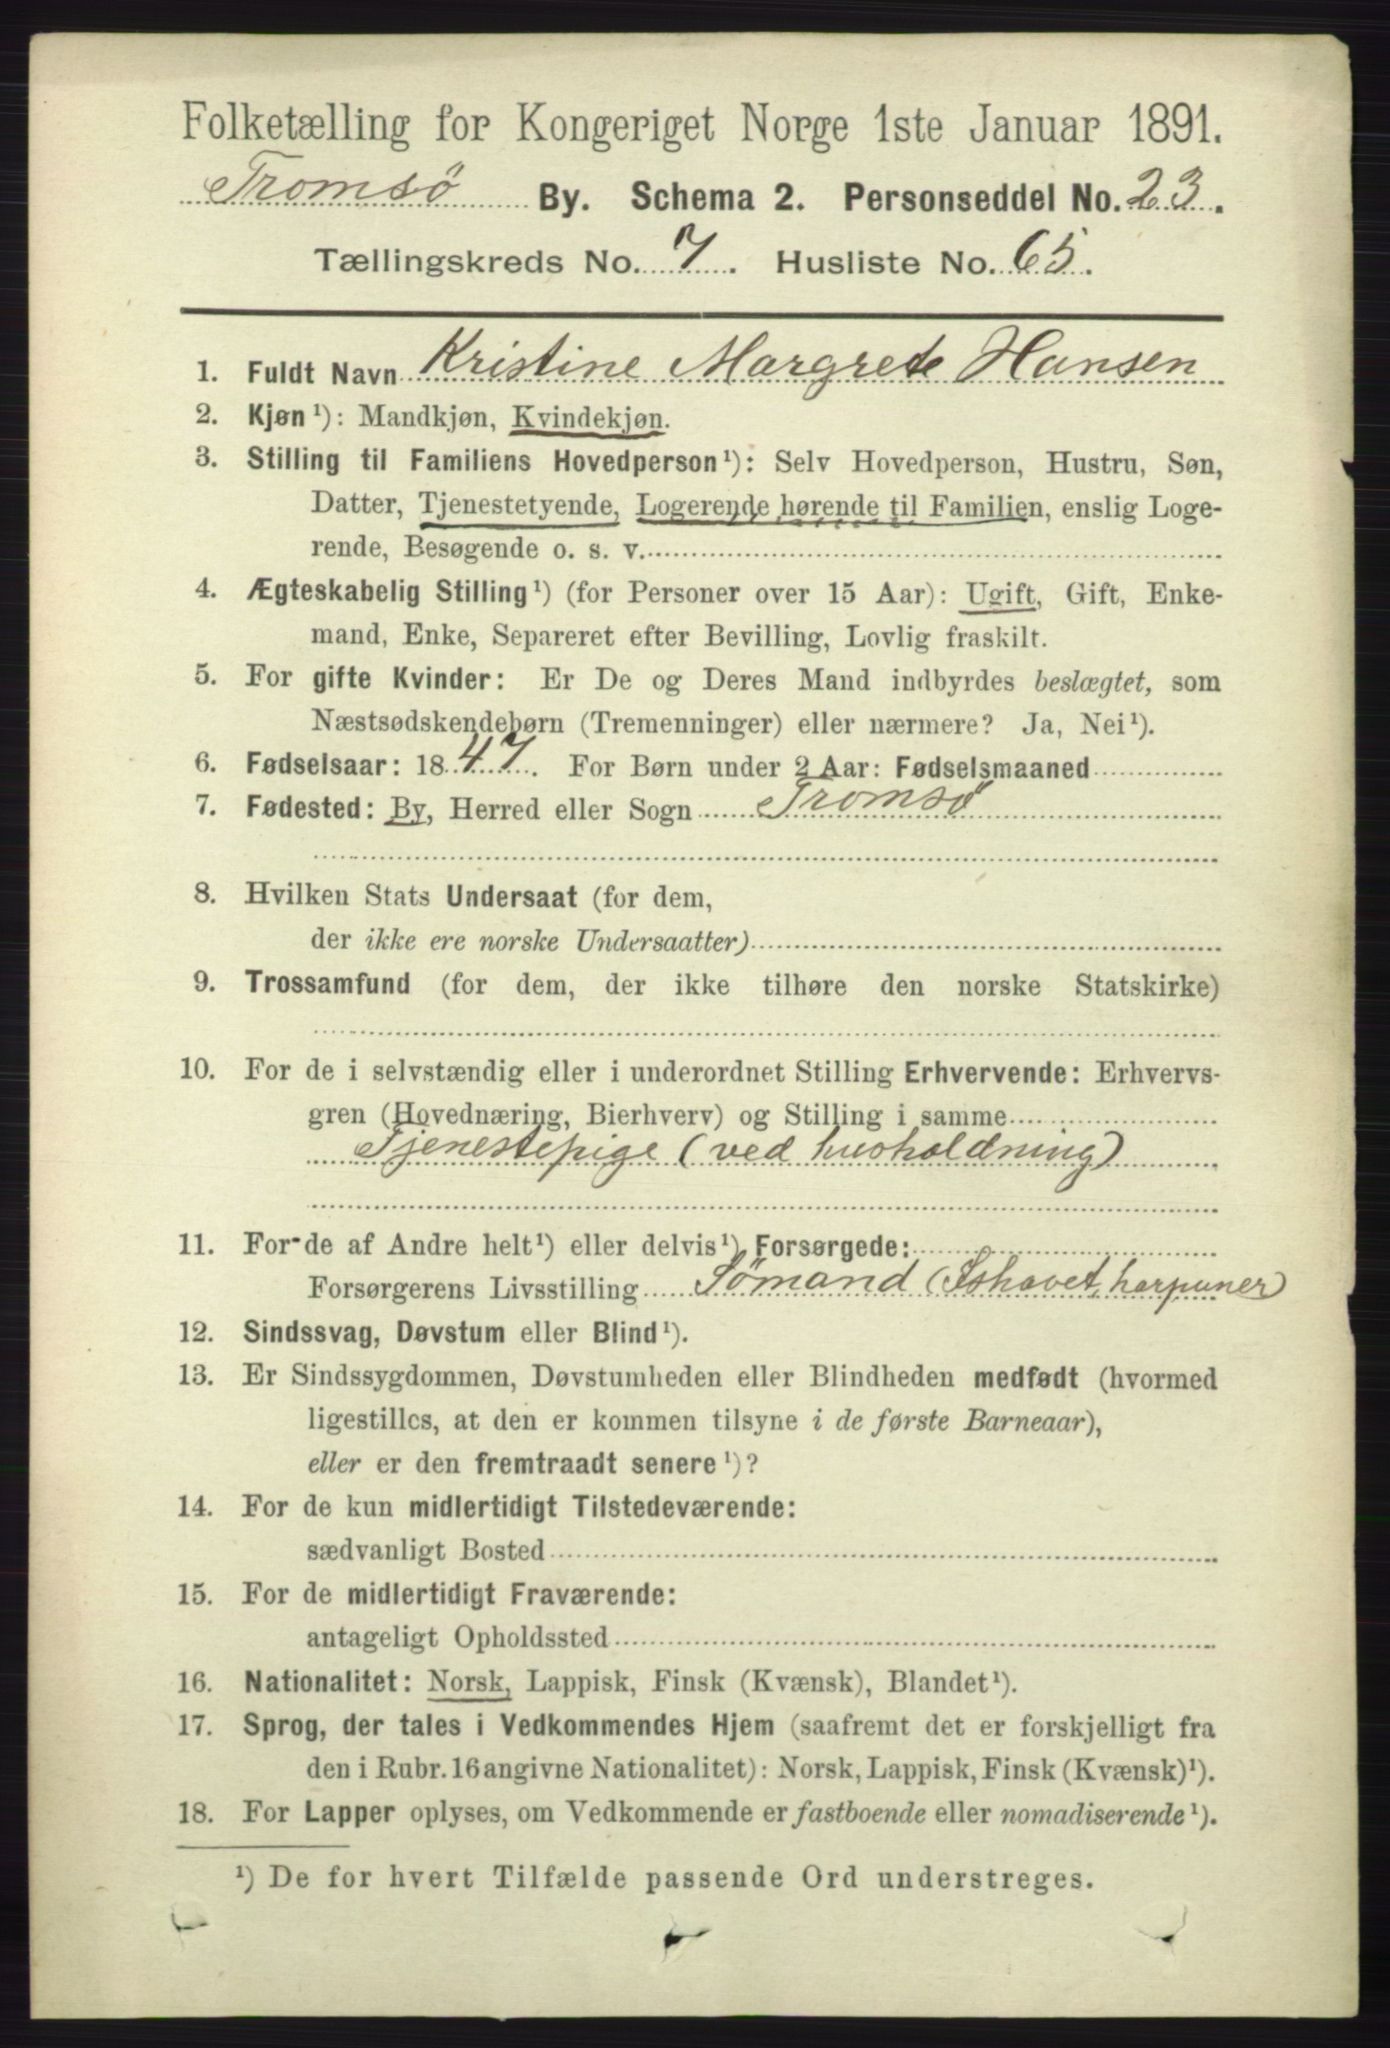 Folketælling for Kongeriget Norge 1ste Januar 1891.
Tromsø By. Schema 2. Personseddel No. 23.
Tællingskreds No. 7. Husliste No. 65.
1. Fuldt Navn Kristine Margrete Hansen
2. Kjøn ¹): Mandkjøn, Kvindekjøn.
3. Stilling til Familiens Hovedperson ¹): Selv Hovedperson, Hustru, Søn,
Datter, Tjenestetyende, Logerende hørende til Familien, enslig Loge-
rende, Besøgende o. s. v.
4. Ægteskabelig Stilling ¹) (for Personer over 15 Aar): Ugift, Gift, Enke-
mand, Enke, Separeret efter Bevilling, Lovlig fraskilt.
5. For gifte Kvinder: Er De og Deres Mand indbyrdes beslægtet, som
Næstsødskendebørn (Tremenninger) eller nærmere? Ja, Nei ¹).
6. Fødselsaar: 1847. For Børn under 2 Aar: Fødselsmaaned
7. Fødested: By, Herred eller Sogn Tromsø
8. Hvilken Stats Undersaat (for dem,
der ikke ere norske Undersaatter)
9. Trossamfund (for dem, der ikke tilhøre den norske Statskirke)
10. For de i selvstændig eller i underordnet Stilling Erhvervende: Erhvervs-
gren (Hovednæring, Bierhverv) og Stilling i samme
Tjenestepige (ved husholdning)
11. For de af Andre helt ¹) eller delvis ¹) Forsørgede:
Forsørgerens Livsstilling Sømand (Ishavet, harpuner)
12. Sindssvag, Døvstum eller Blind ¹).
13. Er Sindssygdommen, Døvstumheden eller Blindheden medfødt (hvormed
ligestilles, at den er kommen tilsyne i de første Barneaar),
eller er den fremtraadt senere ¹)?
14. For de kun midlertidigt Tilstedeværende:
sædvanligt Bosted
15. For de midlertidigt Fraværende:
antageligt Opholdssted
16. Nationalitet: Norsk, Lappisk, Finsk (Kvænsk), Blandet ¹).
17. Sprog, der tales i Vedkommendes Hjem (saafremt det er forskjelligt fra
den i Rubr. 16 angivne Nationalitet): Norsk, Lappisk, Finsk (Kvænsk) ¹).
18. For Lapper oplyses, om Vedkommende er fastboende eller nomadiserende ¹).
¹) De for hvert Tilfælde passende Ord understreges.